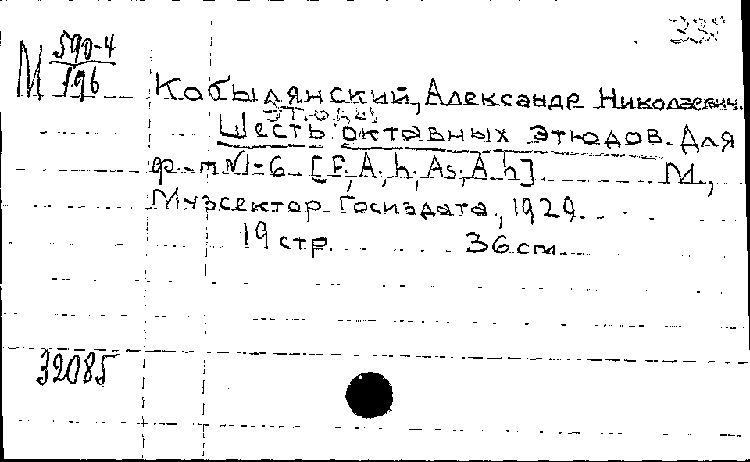 М 590-4
196
Кобылянский, Александр Николаевич.
Этюды
Шесть октавных этюдов. Для
ф-п №1-6 [F, A, h, As, A, h] М.,
Музсектор Госиздата, 1929.
19 стр. 36 см.
32085